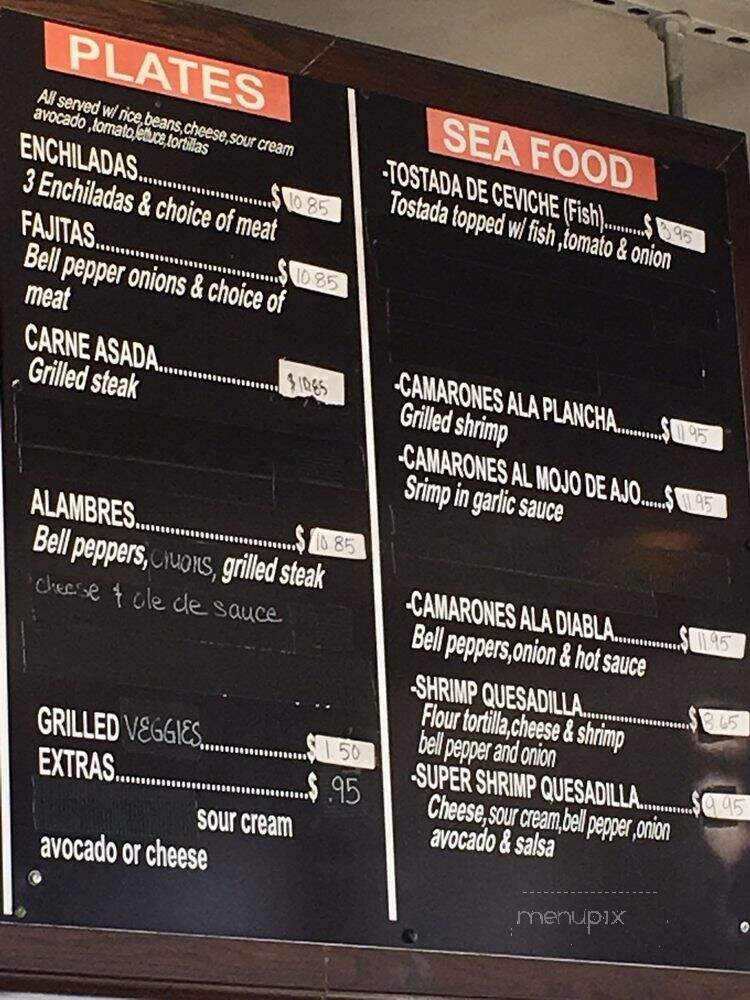 PLATES
All served w/ rice,beans,cheese,sour cream
avocado ,tomato,lettuce,tortillas
ENCHILADAS..................$ 10.85
3 Enchiladas & choice of meat
FAJITAS.........................$ 10.85
Bell pepper onions & choice of
meat
CARNE ASADA................ $10.85
Grilled steak
ALAMBRES......................$ 10.85
Bell peppers, onions, grilled steak
cheese & ole de sauce
GRILLED VEGGIES..............$ 1.50
EXTRAS..........................$ .95
sour cream
avocado or cheese
SEA FOOD
-TOSTADA DE CEVICHE (Fish).......$ 3.95
Tostada topped w/ fish ,tomato & onion
-CAMARONES ALA PLANCHA........$ 11.95
Grilled shrimp
-CAMARONES AL MOJO DE AJO.....$ 11.95
Srimp in garlic sauce
-CAMARONES ALA DIABLA...........$ 11.95
Bell peppers,onion & hot sauce
-SHRIMP QUESADILLA.................$ 8.65
Flour tortilla,cheese & shrimp
bell pepper and onion
-SUPER SHRIMP QUESADILLA.........$ 9.95
Cheese,sour cream,bell pepper ,onion
avocado & salsa
menupix